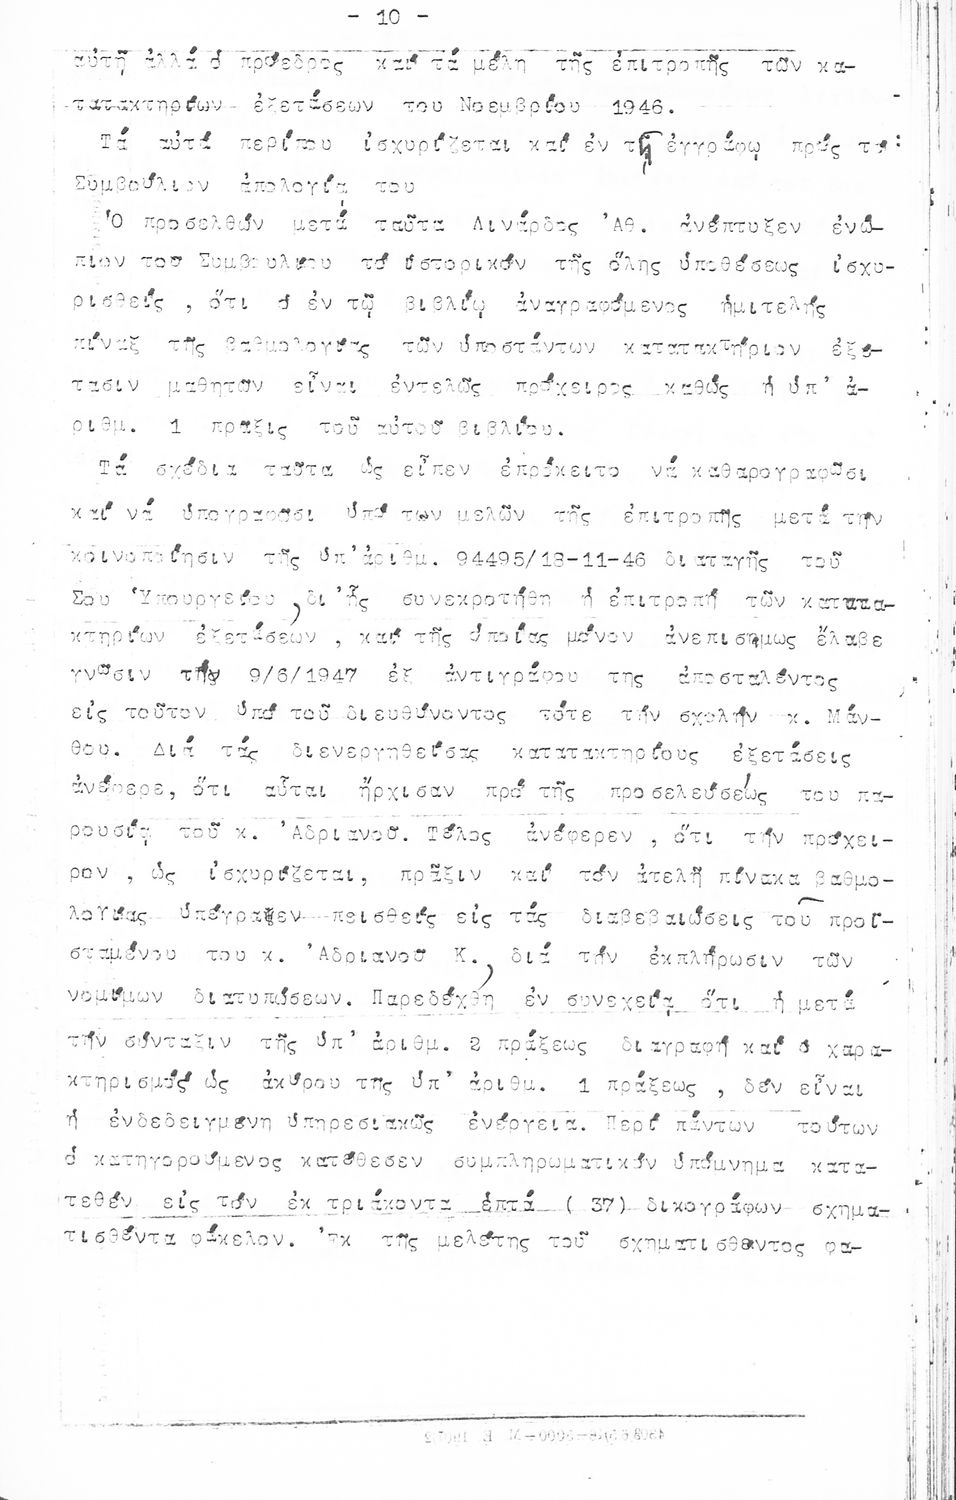 - 10 -
αὐτή ἀλλά ὁ πρόεδρος καί τά μέλη τῆς ἐπιτροπῆς τῶν κα-
τατακτηρίων ἐξετάσεων του Νοεμβρίου 1946.
Τά αὐτά περίπου ἰσχυρίζεται καί ἐν τῇ ἐγγράφῳ πρός τό
Συμβούλιον ἀπολογίᾳ του
Ὁ προσελθών μετά ταῦτα Λινάρδος Ἀθ. ἀνέπτυξεν ἐνώ-
πιον του Συμβουλίου τό ἱστορικόν τῆς ὅλης ὑποθέσεως ἰσχυ-
ρισθείς , ὅτι ὁ ἐν τῷ βιβλίῳ ἀναγραφόμενος ἡμιτελής
πίναξ τῆς βαθμολογίας τῶν ὑποστάντων κατατακτήριον ἐξέ-
τασιν μαθητῶν εἶναι ἐντελῶς πρόχειρος καθώς ἡ ὑπ' ἀ-
ριθμ. 1 πρᾶξις τοῦ αὐτοῦ βιβλίου.
Τά σχέδια ταῦτα ὡς εἶπεν ἐπρόκειτο νά καθαρογραφῶσι
καί νά ὑπογραφῶσι ὑπό των μελῶν τῆς ἐπιτροπῆς μετά τήν
κοινοποίησιν τῆς ὑπ'ἀριθμ. 94495/18-11-46 διαταγῆς τοῦ
Σου Ὑπουργείου , δι 'ἧς συνεκροτήθη ἡ ἐπιτροπή τῶν κατατα-
κτηρίων ἐξετάσεων , καί τῆς ὁποίας μόνον ἀνεπισήμως ἔλαβε
γνῶσιν τήν 9/6/1947 ἐξ ἀντιγράφου της ἀποσταλέντος
εἰς τοῦτον ὑπό τοῦ διευθύνοντος τότε τήν σχολήν κ. Μάν-
θου. Διά τάς διενεργηθείσας κατατακτηρίους ἐξετάσεις
ἀνέφερε, ὅτι αὗται ἤρχισαν πρό τῆς προσελεύσεώς του πα-
ρουσίᾳ τοῦ κ. Ἀδριανοῦ. Τέλος ἀνέφερεν , ὅτι τήν πρόχει-
ρον , ὡς ἰσχυρίζεται, πρᾶξιν καί τόν ἀτελῆ πίνακα βαθμο-
λογίας ὑπέγραψεν πεισθείς εἰς τάς διαβεβαιώσεις τοῦ προϊ-
σταμένου του κ. Ἀδριανοῦ Κ., διά τήν ἐκπλήρωσιν τῶν
νομίμων διατυπώσεων. Παρεδέχθη ἐν συνεχείᾳ ὅτι ἡ μετά
τήν σύνταξιν τῆς ὑπ' ἀριθμ. 2 πράξεως διαγραφή καί ὁ χαρα-
κτηρισμός ὡς ἀκύρου της ὑπ' ἀριθμ. 1 πράξεως , δέν εἶναι
ἡ ἐνδεδειγμένη ὑπηρεσιακῶς ἐνέργεια. Περί πάντων τούτων
ὁ κατηγορούμενος κατέθεσεν συμπληρωματικόν ὑπόμνημα κατα-
τεθέν εἰς τόν ἐκ τριάκοντα ἑπτά ( 37) δικογράφων σχημα-
τισθέντα φάκελον. Ἐκ τῆς μελέτης τοῦ σχηματισθέντος φα-